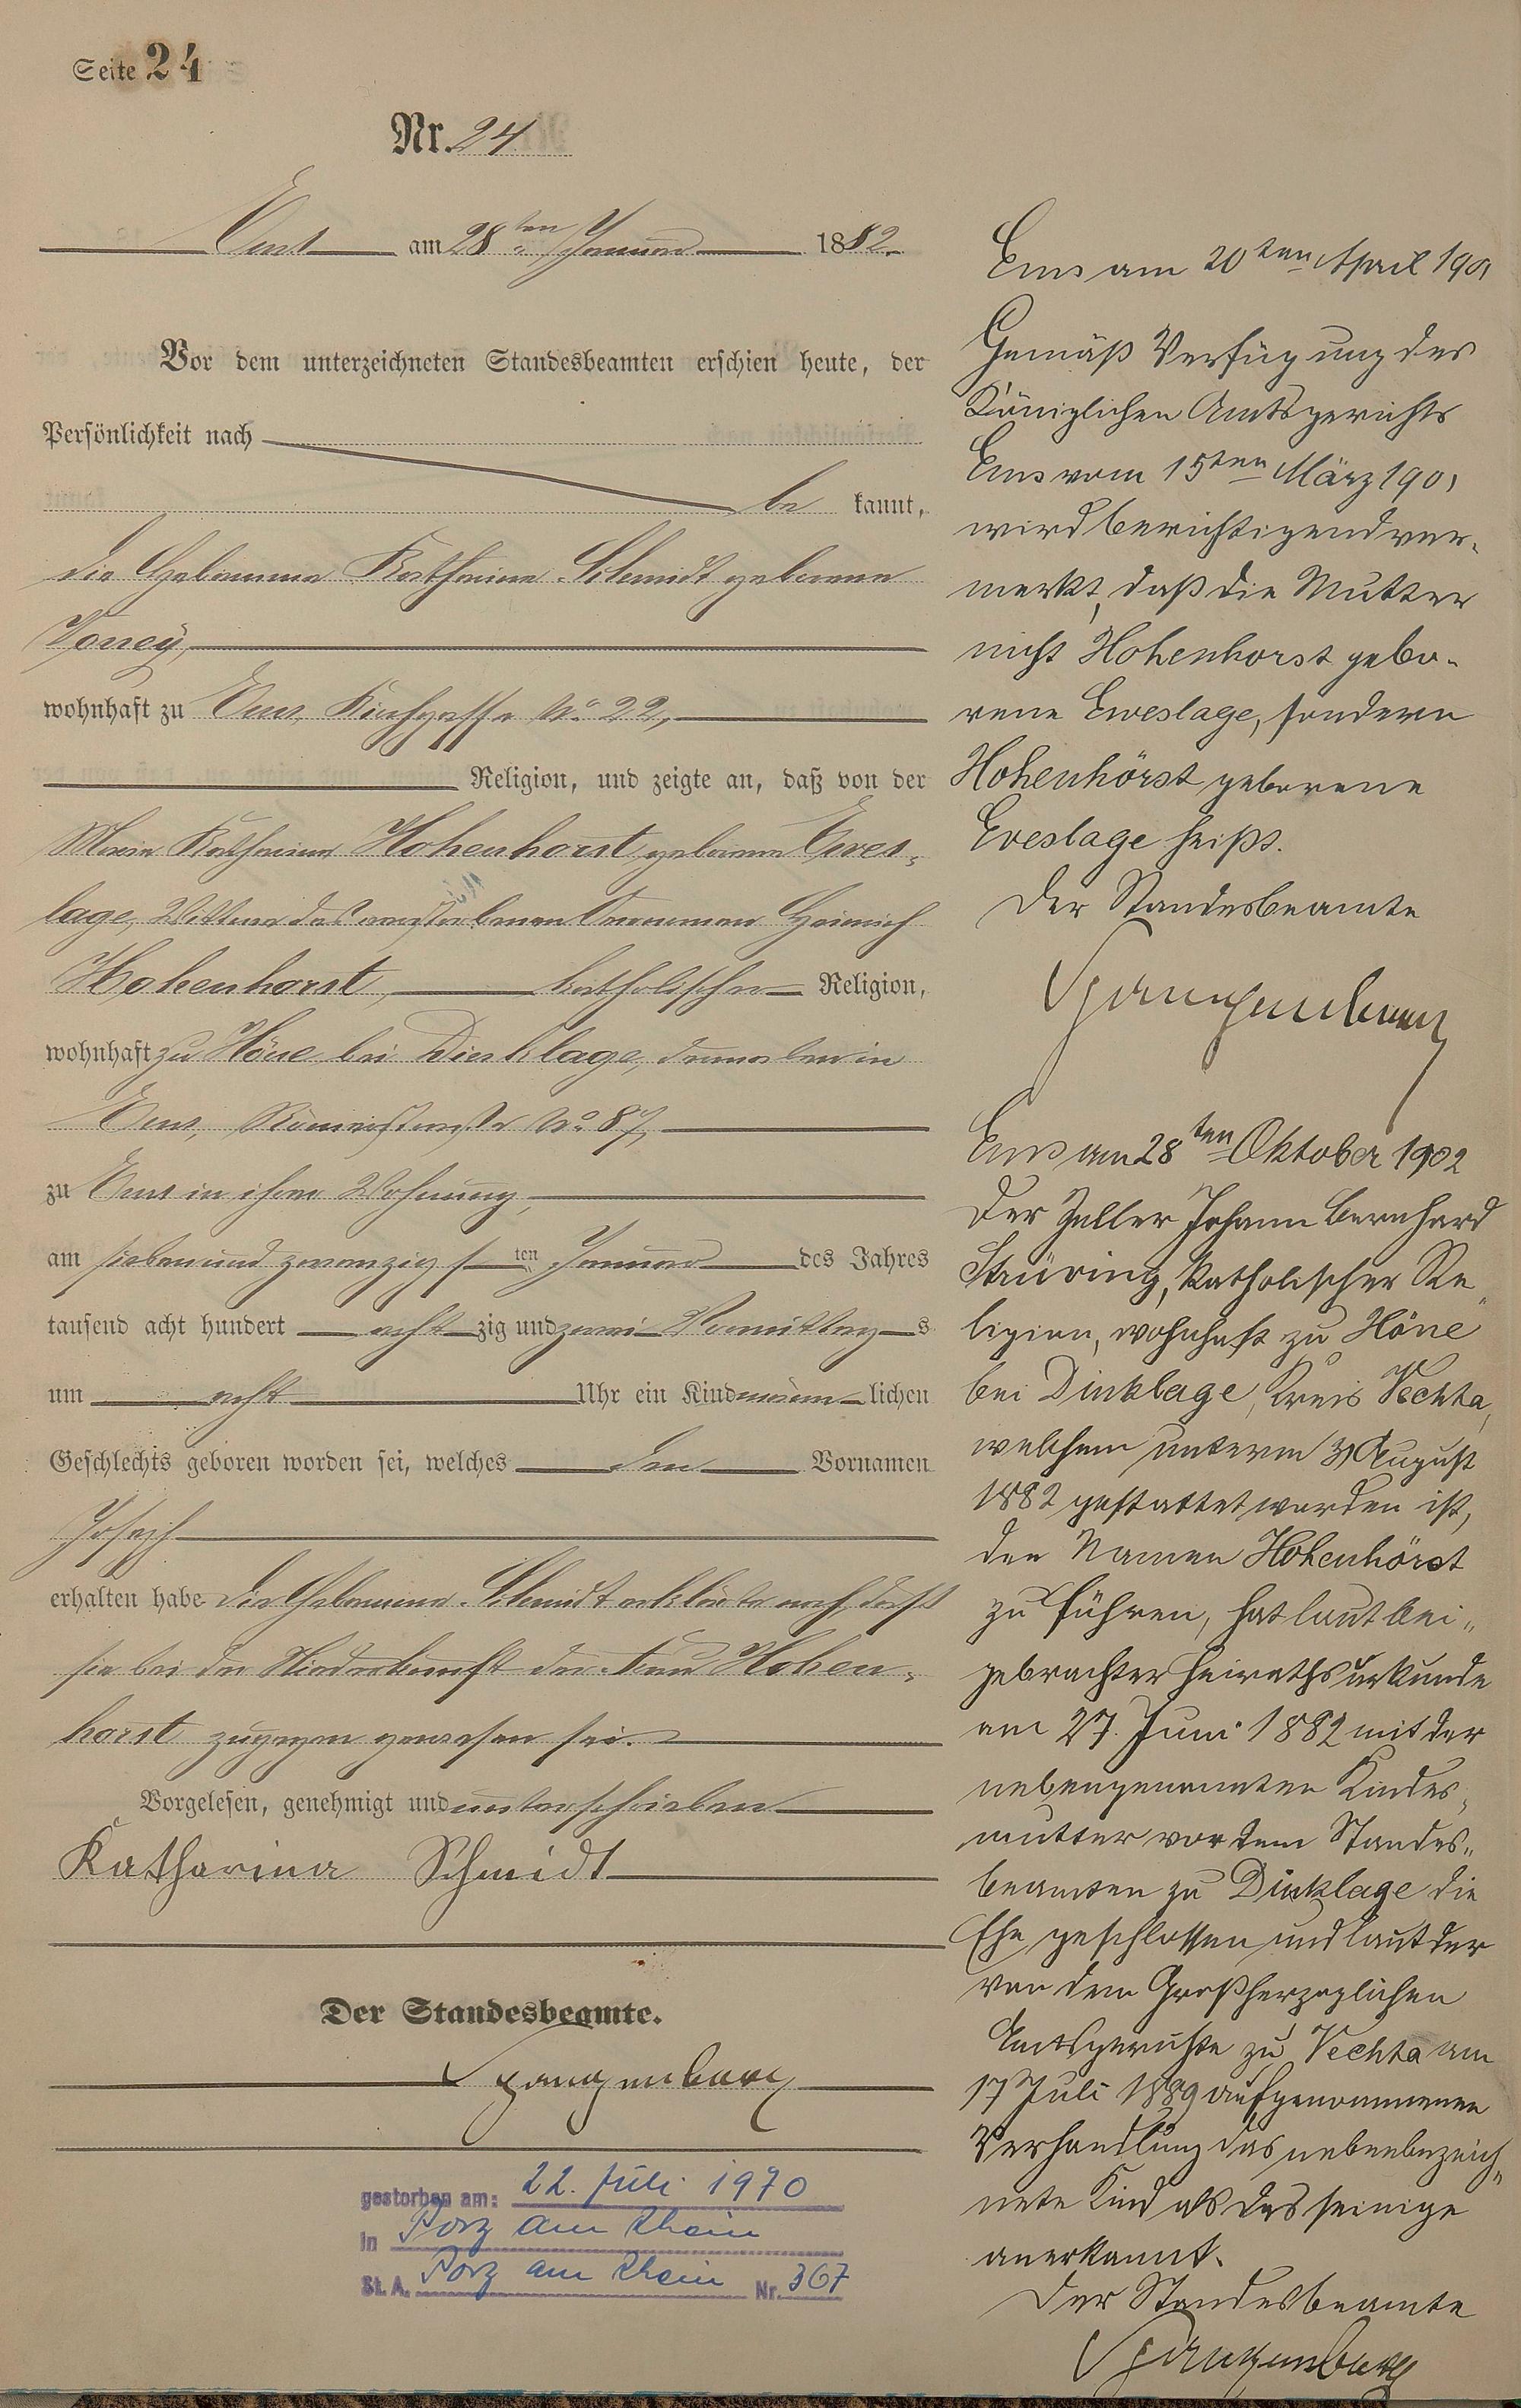 Seite 24
Nr. 24
Ems am 28ten Januar 1882.
Vor dem unterzeichneten Standesbeamten erschien heute, der
Persönlichkeit nach
be kannt,
die Hebamme Katharina Schmidt geborene
wohnhaft zu Ems, Kirchgasse No. 22,
Religion, und zeigte an, daß von der
Maria Katharina Hohenhorst geborene Eves-
lage, Wittwe des verstorbenen Heinrich
Hohenhorst, katholischer Religion,
wohnhaft zu Höne bei Dinklage, in
Ems, Römerstraße No. 87,
zu Ems in ihrer Wohnung,
am siebenundzwanzigsten Januar des Jahres
tausend acht hundert achtzig und zwei Vormittags
um acht Uhr ein Kind männlichen
Geschlechts geboren worden sei, welches den Vornamen
Joseph
erhalten habe. Die Hebamme Schmidt erklärte noch, daß
sie bei der Niederkunft der Frau Hohen-
horst zugegen gewesen sei.
Vorgelesen, genehmigt und unterschrieben
Katharina Schmidt
Der Standesbeamte.
Spangenberg
gestorben am: 22. Juli 1970
in Porz am Rhein
St. A. Porz am Rhein Nr. 367
Ems am 20ten April 1901
Gemäß Verfügung des
Königlichen Amtsgerichts
Ems vom 15ten März 1901
wird berichtigend ver-
merkt, daß die Mutter
nicht Hohenhorst gebo-
rene Eweslage, sondern
Hohenhörst geborene
Eveslage heißt.
Der Standesbeamte
Spangenberg
Ems am 28ten Oktober 1902
Der Zeller Johann Bernhard
Stüving, katholischer Re-
ligion, wohnhaft zu Höne
bei Dinklage, Kreis Vechta,
welchem unterm 31 August
1882 gestattet worden ist,
den Namen Hohenhörst
zu führen, hat laut bei-
gebrachter Heirathsurkunde
am 27. Juni 1882 mit der
nebengenannten Kindes-
mutter vor dem Standes-
beamten zu Dinklage die
Ehe geschlossen und laut der
von dem Großherzoglichen
Amtsgerichte zu Vechta am
17 Juli 1889 aufgenommenen
Verhandlung das nebenbezeich-
nete Kind als das seinige
anerkannt.
Der Standesbeamte
Spangenberg